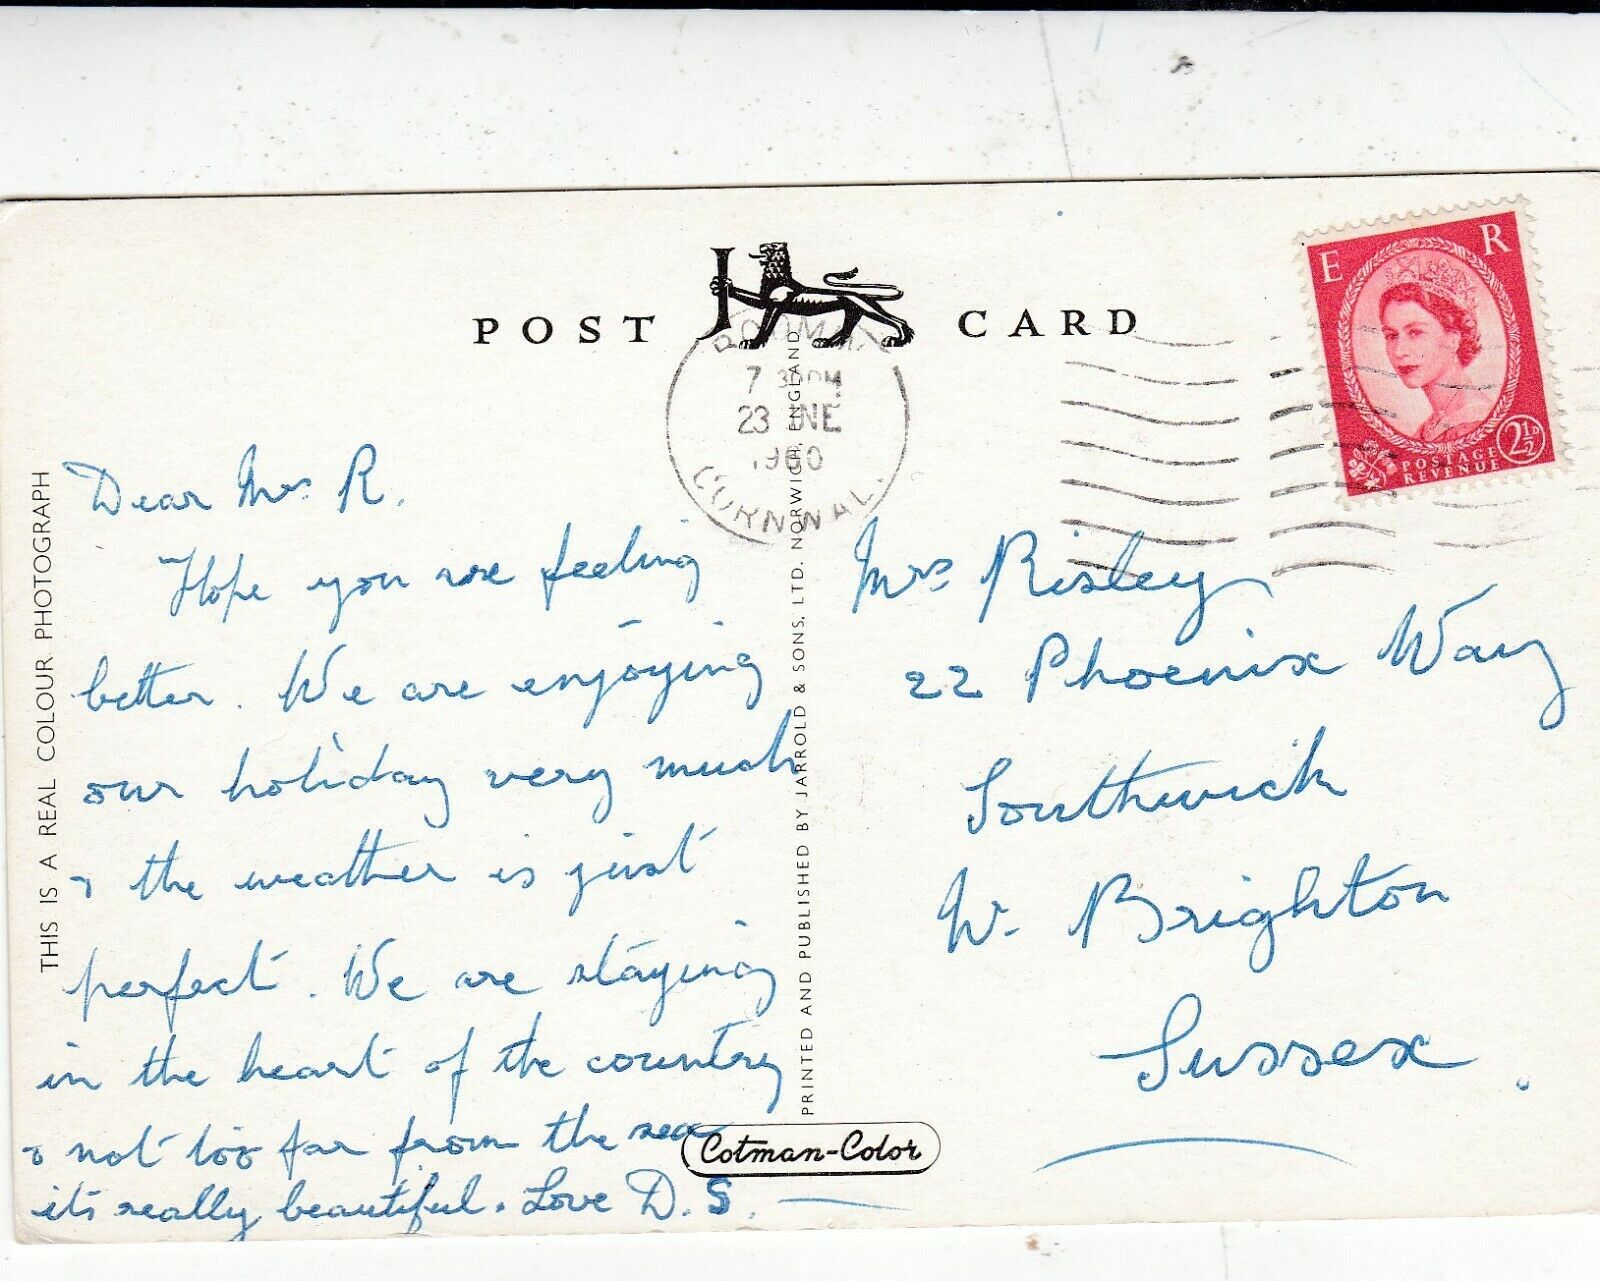 POST CARD
E R
2½D
POSTAGE
REVENUE
BODMIN
7 30PM
23 JNE
1960
CORNWALL.
THIS IS A REAL COLOUR PHOTOGRAPH
Dear Mrs R.
Hope you are feeling
better. We are enjoying
our holiday very much
& the weather is just
perfect. We are staying
in the heart of the country
& not too far from the sea
its really beautiful. Love D.S.
PRINTED AND PUBLISHED BY JARROLD & SONS, LTD. NORWICH. ENGLAND
Cotman-Color
Mrs Risley
22 Phoenix Way
Southwick
W. Brighton
Sussex.